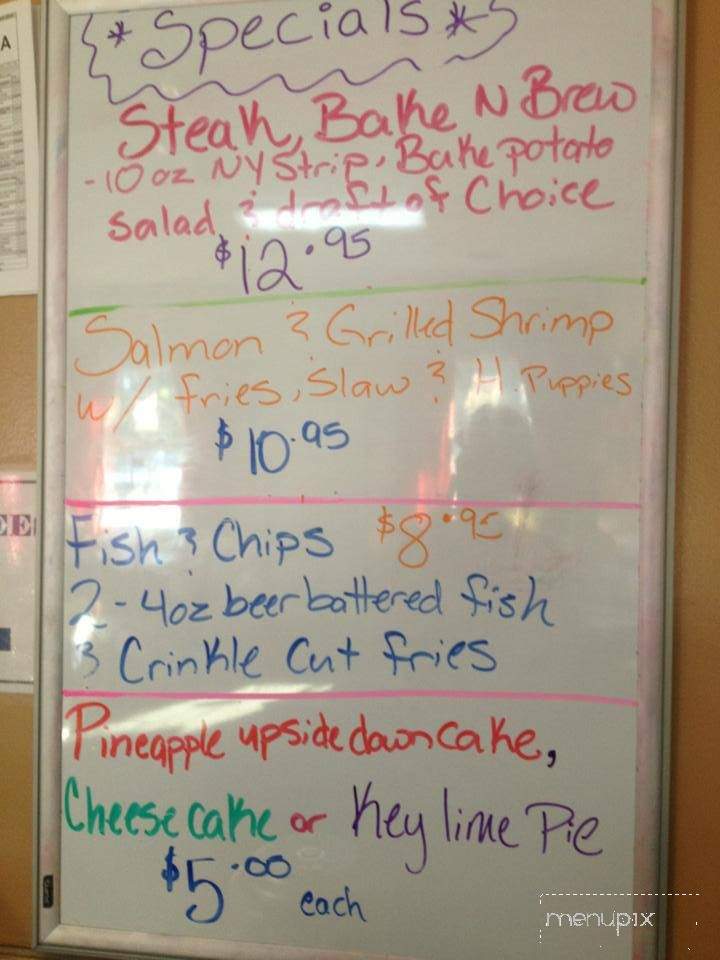 *Specials*
Steak, Bake N Brew
-10oz NY Strip, Bake potato
salad & draft of Choice
$12.95
Salmon & Grilled Shrimp
w/ fries, Slaw & H. Puppies
$10.95
Fish & Chips $8.95
2-4oz beer battered fish
& Crinkle Cut fries
Pineapple upside down cake,
Cheese cake or Key lime Pie
$5.00 each
menupix